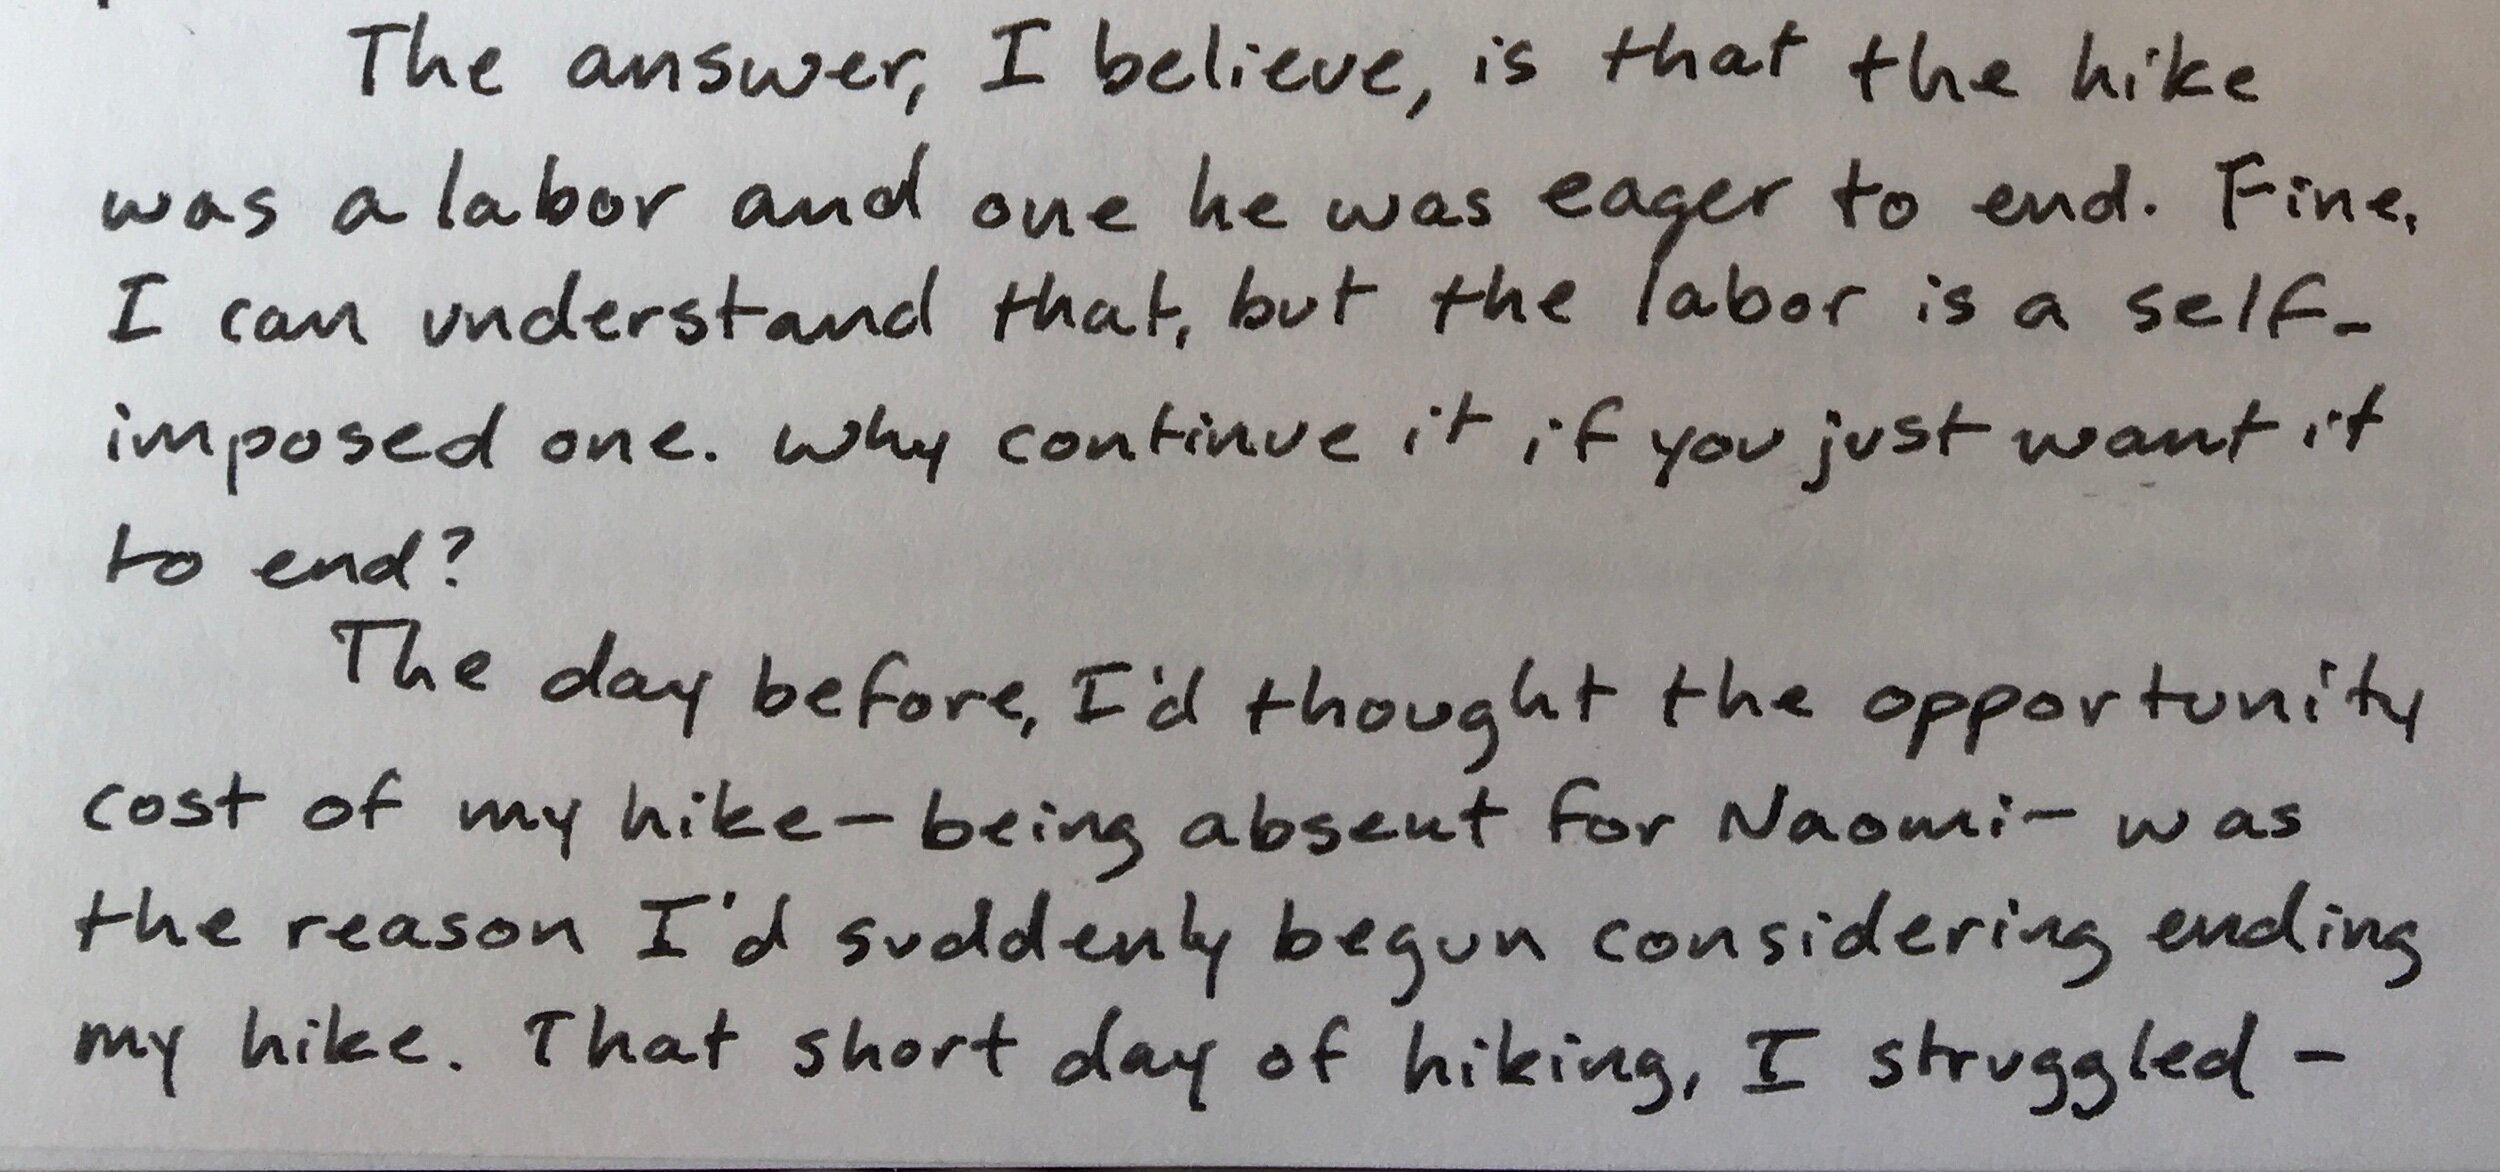 The answer, I believe, is that the hike
was a labor and one he was eager to end. Fine,
I can understand that, but the labor is a self-
imposed one. Why continue it if you just want it
to end?
The day before, I'd thought the opportunity
cost of my hike—being absent for Naomi—was
the reason I'd suddenly begun considering ending
my hike. That short day of hiking, I struggled—